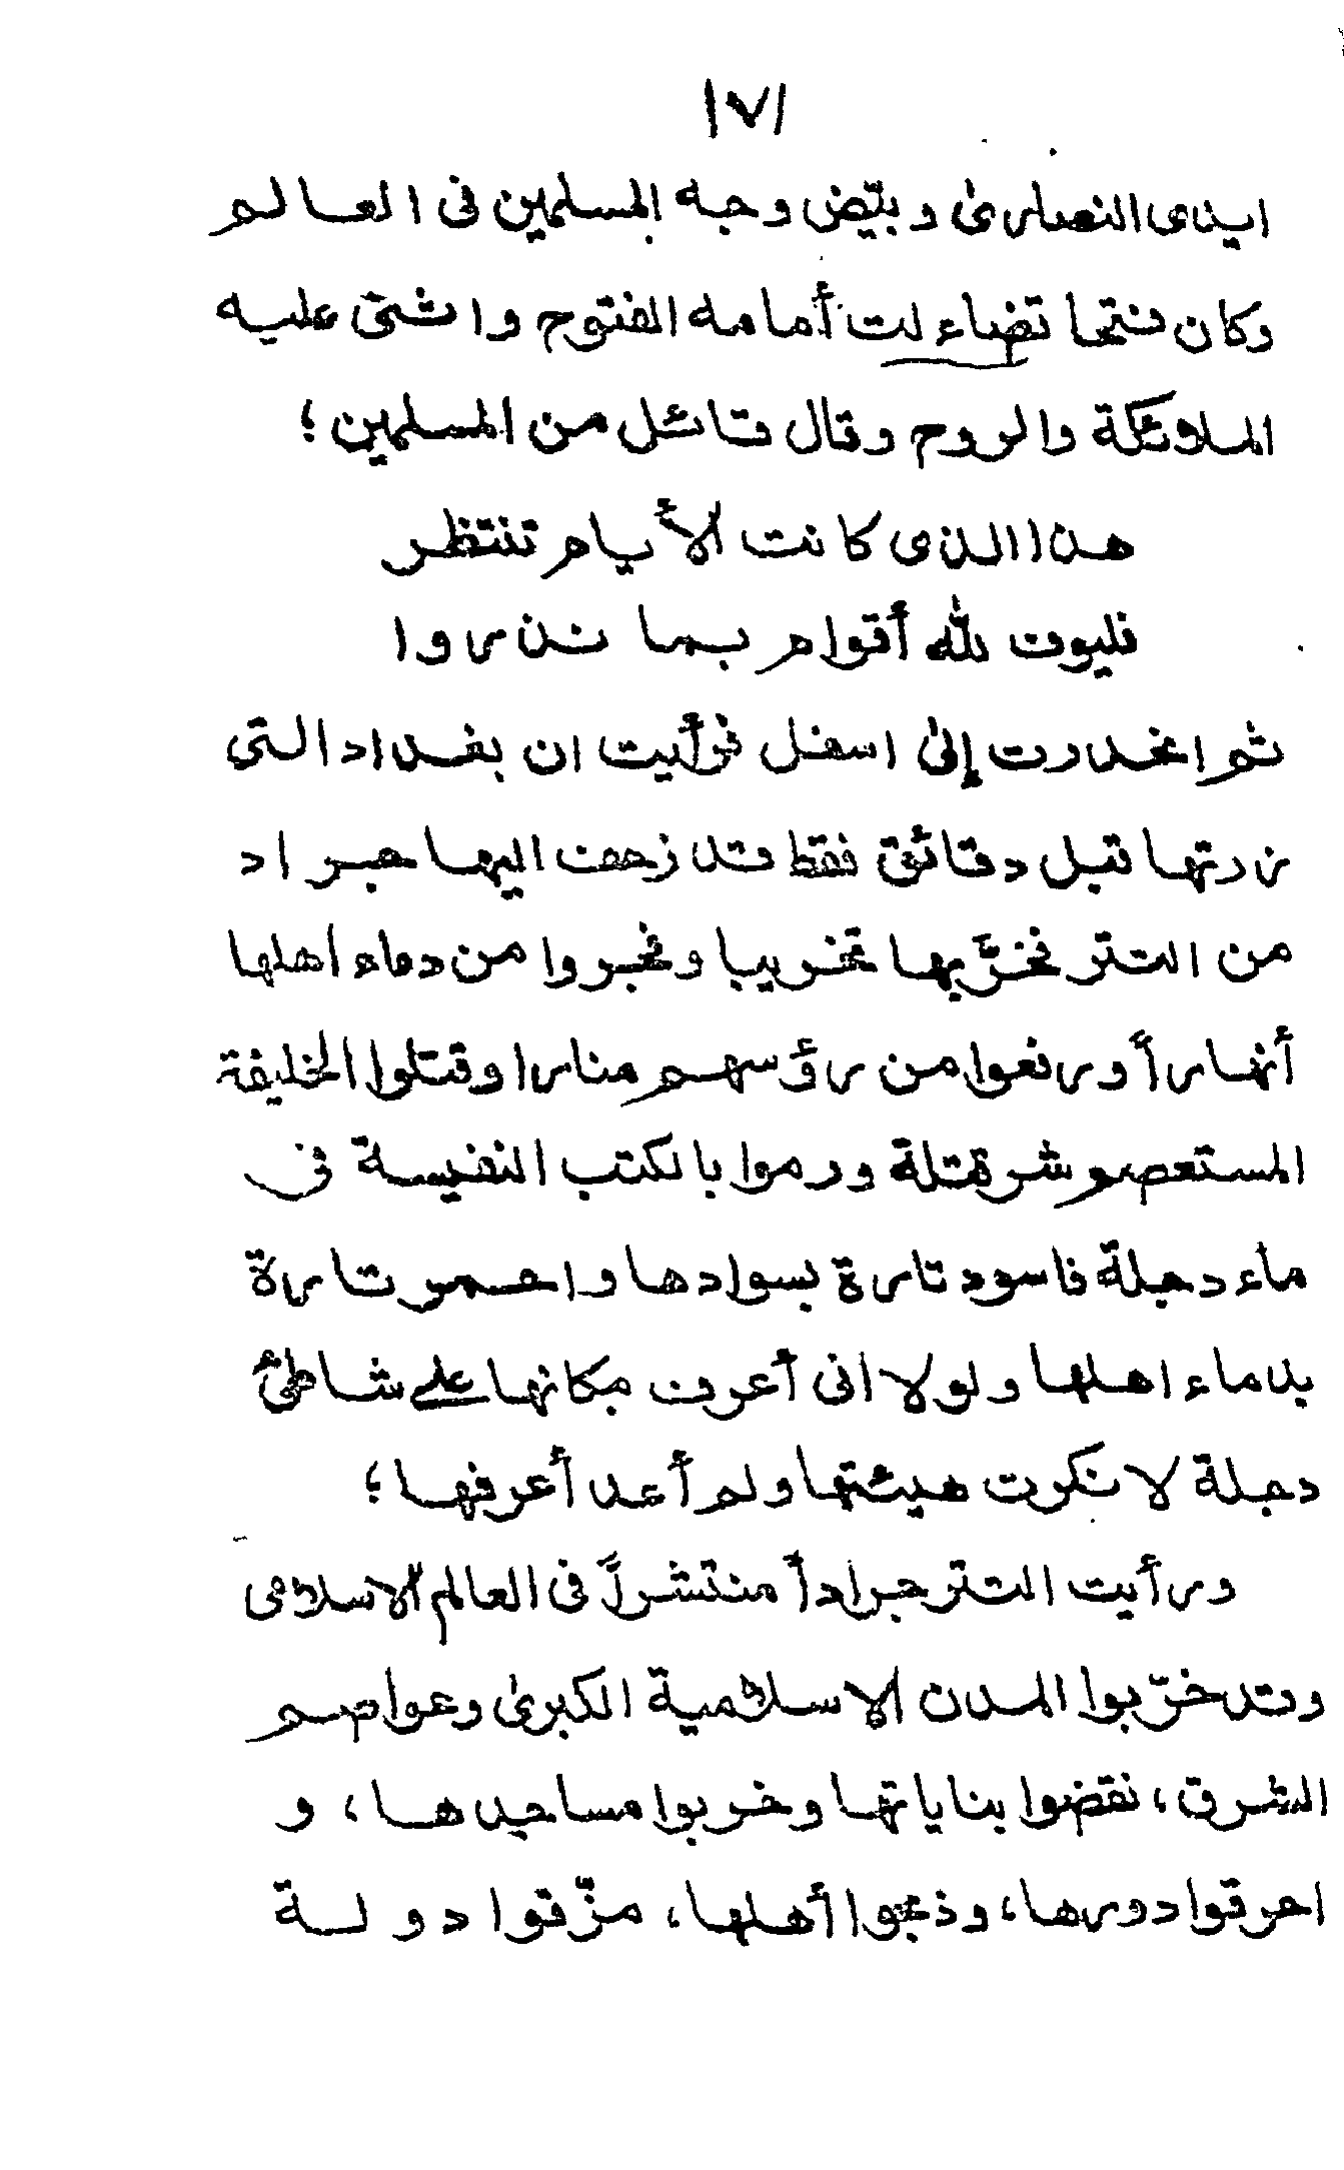 ١٧١
ايدى النصارى وبيّض وجه المسلمين فى العالم
وكان فتحا تضاءلت أمامه الفتوح واثنى عليه
الملائكة والروح وقال قائل من المسلمين؛
هذا الذى كانت الأيام تنتظر
فليوف لله أقوام بما نذروا
ثم انحدرت إلى اسفل فرأيت ان بغداد التى
زرتها قبل دقائق فقط قد زحف اليها جراد
من التتر فخرَّبها تخريبا وفجروا من دماء اهلها
أنهاراً ورفعوا من رؤسهم منارا وقتلوا الخليفة
المستعصم شر قتلة ورموا بالكتب النفيسة فى
ماء دجلة فاسود تارة بسوادها واحمر تارة
بدماء اهلها ولولا انى أعرف مكانها على شاطئ
دجلة لانكرت هيئتها ولم أعد أعرفها؛
ورأيت التتر جراداً منتشراً فى العالم الاسلامى
وقد خرّبوا المدن الاسلامية الكبرى وعواصم
الشرق، نقضوا بناياتها وخربوا مساجدها، و
احرقوا دورها، وذبحوا أهلها، مزّقوا دولة